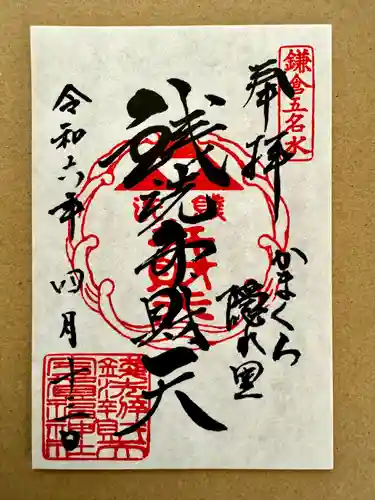 鎌倉五名水
奉拝
かまくら
隠れ里
銭洗弁財天
令和六年四月十三日